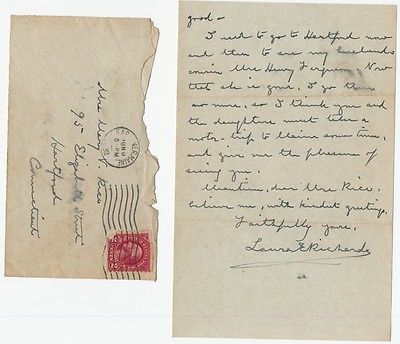 Mrs Mary S. Rice
95 Elizabeth Street
Hartford
Connecticut
GARDINER MAINE
5 PM
good –
I used to go to Hartford now
and then to see my husband's
cousin Mrs Henry Ferguson. Now
that she is gone, I go there
no more, so I think you and
the daughters must take a
motor-trip to Maine some time,
and give me the pleasure of
seeing you.
Meantime, dear Mrs Rice,
believe me, with kindest greetings,
Faithfully yours,
Laura E Richards